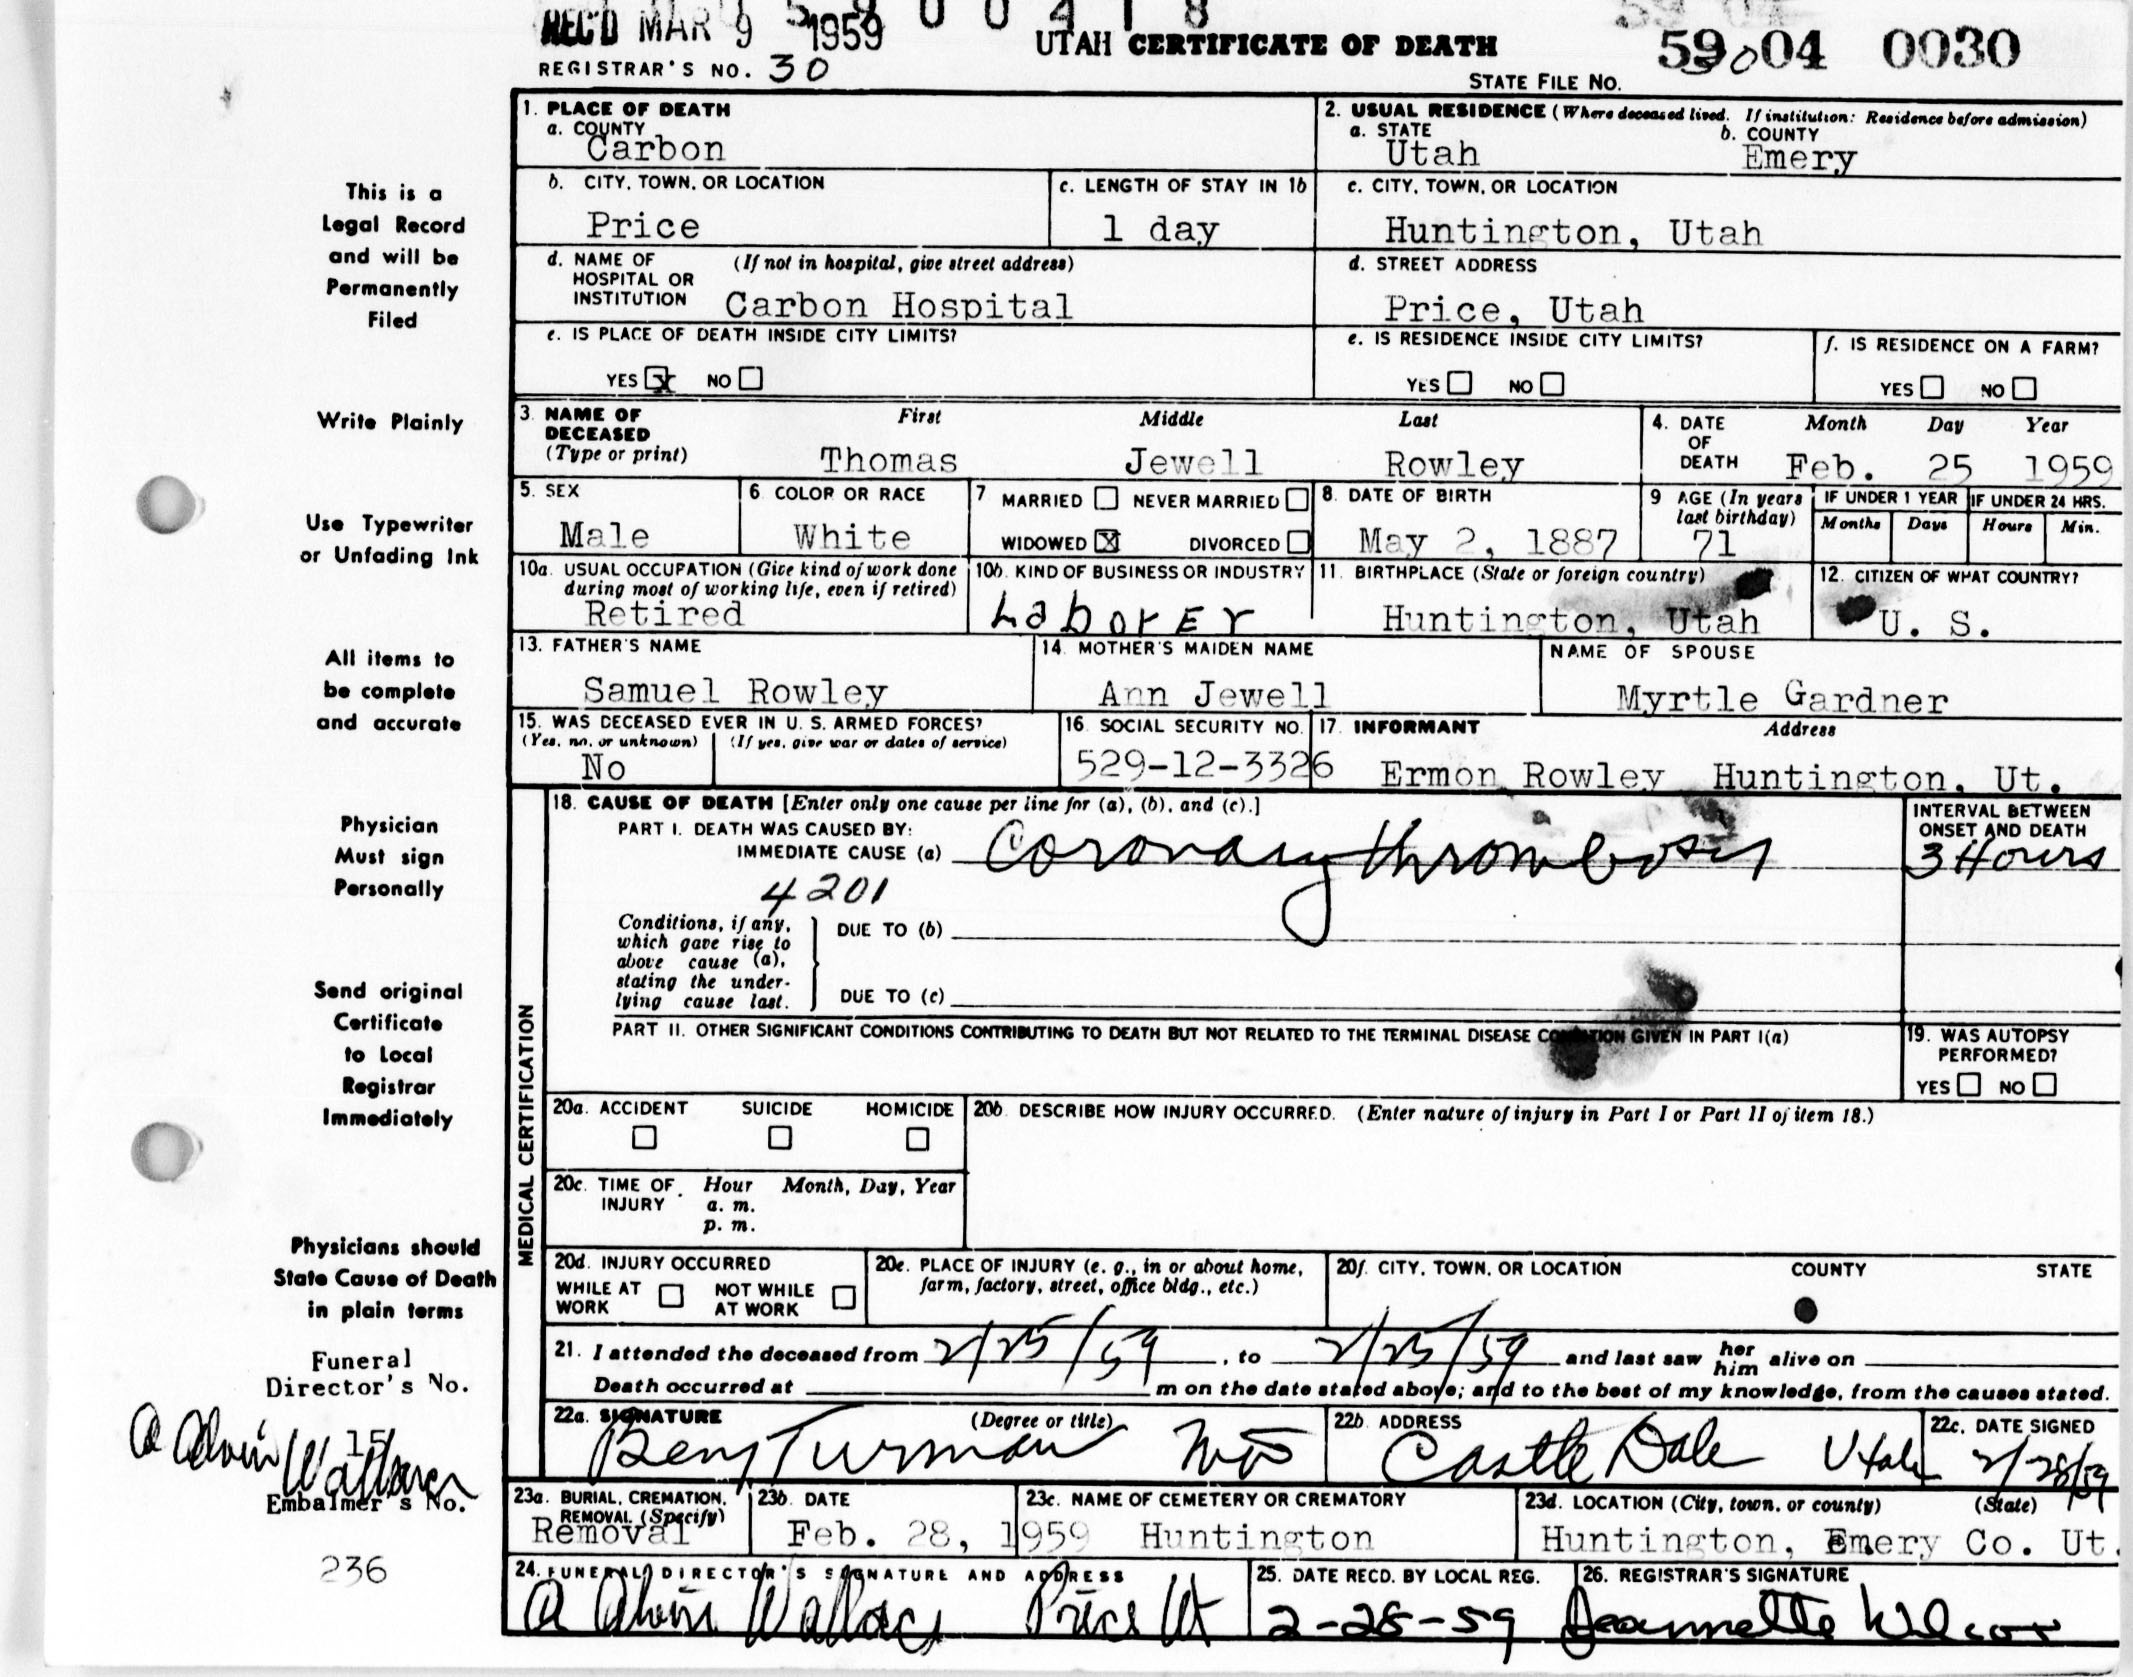 REC'D MAR 9 1959
UTAH CERTIFICATE OF DEATH
59 04 0030
REGISTRAR'S NO. 30
STATE FILE NO.
1. PLACE OF DEATH
a. COUNTY
Carbon
2. USUAL RESIDENCE (Where deceased lived. If institution: Residence before admission)
a. STATE
Utah
b. COUNTY
Emery
b. CITY, TOWN, OR LOCATION
Price
c. LENGTH OF STAY IN 1b
1 day
c. CITY, TOWN, OR LOCATION
Huntington, Utah
d. NAME OF HOSPITAL OR INSTITUTION
(If not in hospital, give street address)
Carbon Hospital
d. STREET ADDRESS
Price, Utah
e. IS PLACE OF DEATH INSIDE CITY LIMITS?
YES X NO
e. IS RESIDENCE INSIDE CITY LIMITS?
YES NO
f. IS RESIDENCE ON A FARM?
YES NO
3. NAME OF DECEASED
(Type or print)
First Middle Last
Thomas Jewell Rowley
4. DATE OF DEATH
Month Day Year
Feb. 25 1959
5. SEX
Male
6. COLOR OR RACE
White
7 MARRIED NEVER MARRIED
WIDOWED X DIVORCED
8. DATE OF BIRTH
May 2, 1887
9 AGE (In years last birthday)
71
IF UNDER 1 YEAR
Months Days
IF UNDER 24 HRS.
Hours Min.
10a. USUAL OCCUPATION (Give kind of work done during most of working life, even if retired)
Retired
10b. KIND OF BUSINESS OR INDUSTRY
Laborer
11. BIRTHPLACE (State or foreign country)
Huntington, Utah
12. CITIZEN OF WHAT COUNTRY?
U. S.
13. FATHER'S NAME
Samuel Rowley
14. MOTHER'S MAIDEN NAME
Ann Jewell
NAME OF SPOUSE
Myrtle Gardner
15. WAS DECEASED EVER IN U. S. ARMED FORCES?
(Yes, no, or unknown) (If yes, give war or dates of service)
No
16. SOCIAL SECURITY NO.
529-12-3326
17. INFORMANT Address
Ermon Rowley Huntington, Ut.
MEDICAL CERTIFICATION
18. CAUSE OF DEATH [Enter only one cause per line for (a), (b), and (c).]
PART I. DEATH WAS CAUSED BY:
IMMEDIATE CAUSE (a) Coronary thrombosis
4201
INTERVAL BETWEEN ONSET AND DEATH
3 Hours
Conditions, if any, which gave rise to above cause (a), stating the underlying cause last.
DUE TO (b)
DUE TO (c)
PART II. OTHER SIGNIFICANT CONDITIONS CONTRIBUTING TO DEATH BUT NOT RELATED TO THE TERMINAL DISEASE CONDITION GIVEN IN PART I(a)
19. WAS AUTOPSY PERFORMED?
YES NO
20a. ACCIDENT SUICIDE HOMICIDE
20b. DESCRIBE HOW INJURY OCCURRED. (Enter nature of injury in Part I or Part II of item 18.)
20c. TIME OF INJURY
Hour Month, Day, Year
a. m.
p. m.
20d. INJURY OCCURRED
WHILE AT WORK NOT WHILE AT WORK
20e. PLACE OF INJURY (e. g., in or about home, farm, factory, street, office bldg., etc.)
20f. CITY, TOWN, OR LOCATION COUNTY STATE
21. I attended the deceased from 2/25/59, to 2/25/59 and last saw her him alive on
Death occurred at m on the date stated above; and to the best of my knowledge, from the causes stated.
22a. SIGNATURE (Degree or title)
Benj Turman MD
22b. ADDRESS
Castle Dale Utah
22c. DATE SIGNED
2/28/59
23a. BURIAL, CREMATION, REMOVAL (Specify)
Removal
23b. DATE
Feb. 28, 1959
23c. NAME OF CEMETERY OR CREMATORY
Huntington
23d. LOCATION (City, town, or county) (State)
Huntington, Emery Co. Ut.
24. FUNERAL DIRECTOR'S SIGNATURE AND ADDRESS
A Alvin Wallace Price Ut
25. DATE RECD. BY LOCAL REG.
2-28-59
26. REGISTRAR'S SIGNATURE
Jeannette Wilcox
This is a
Legal Record
and will be
Permanently
Filed
Write Plainly
Use Typewriter
or Unfading Ink
All items to
be complete
and accurate
Physician
Must sign
Personally
Send original
Certificate
to Local
Registrar
Immediately
Physicians should
State Cause of Death
in plain terms
Funeral
Director's No.
15
A Alvin Wallace
Embalmer's No.
236